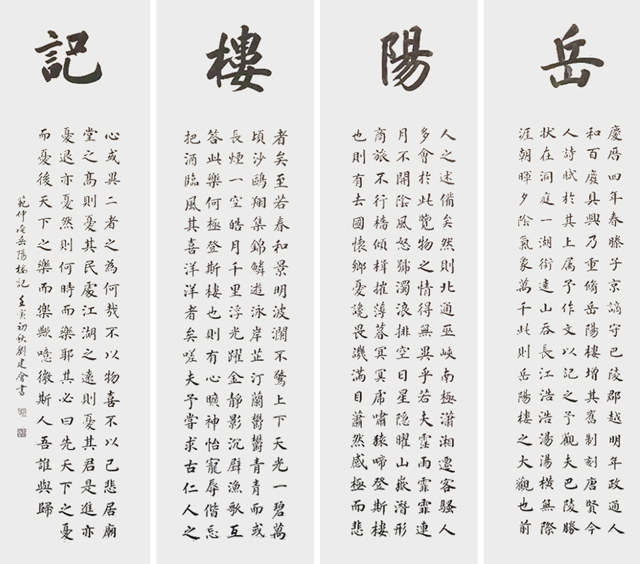 岳
慶曆四年春滕子京謫守巴陵郡越明年政通人
和百廢具興乃重修岳陽樓增其舊制刻唐賢今
人詩賦於其上屬予作文以記之予觀夫巴陵勝
狀在洞庭一湖銜遠山吞長江浩浩湯湯橫無際
涯朝暉夕陰氣象萬千此則岳陽樓之大觀也前
陽
人之述備矣然則北通巫峽南極瀟湘遷客騷人
多會於此覽物之情得無異乎若夫霪雨霏霏連
月不開陰風怒號濁浪排空日星隱曜山嶽潛形
商旅不行檣傾楫摧薄暮冥冥虎嘯猿啼登斯樓
也則有去國懷鄉憂讒畏譏滿目蕭然感極而悲
樓
者矣至若春和景明波瀾不驚上下天光一碧萬
頃沙鷗翔集錦鱗遊泳岸芷汀蘭鬱鬱青青而或
長煙一空皓月千里浮光躍金靜影沉璧漁歌互
答此樂何極登斯樓也則有心曠神怡寵辱偕忘
把酒臨風其喜洋洋者矣嗟夫予嘗求古仁人之
記
心或異二者之為何哉不以物喜不以己悲居廟
堂之高則憂其民處江湖之遠則憂其君是進亦
憂退亦憂然則何時而樂耶其必曰先天下之憂
而憂後天下之樂而樂歟噫微斯人吾誰與歸
范仲淹岳陽樓記 壬寅初秋劉建會書